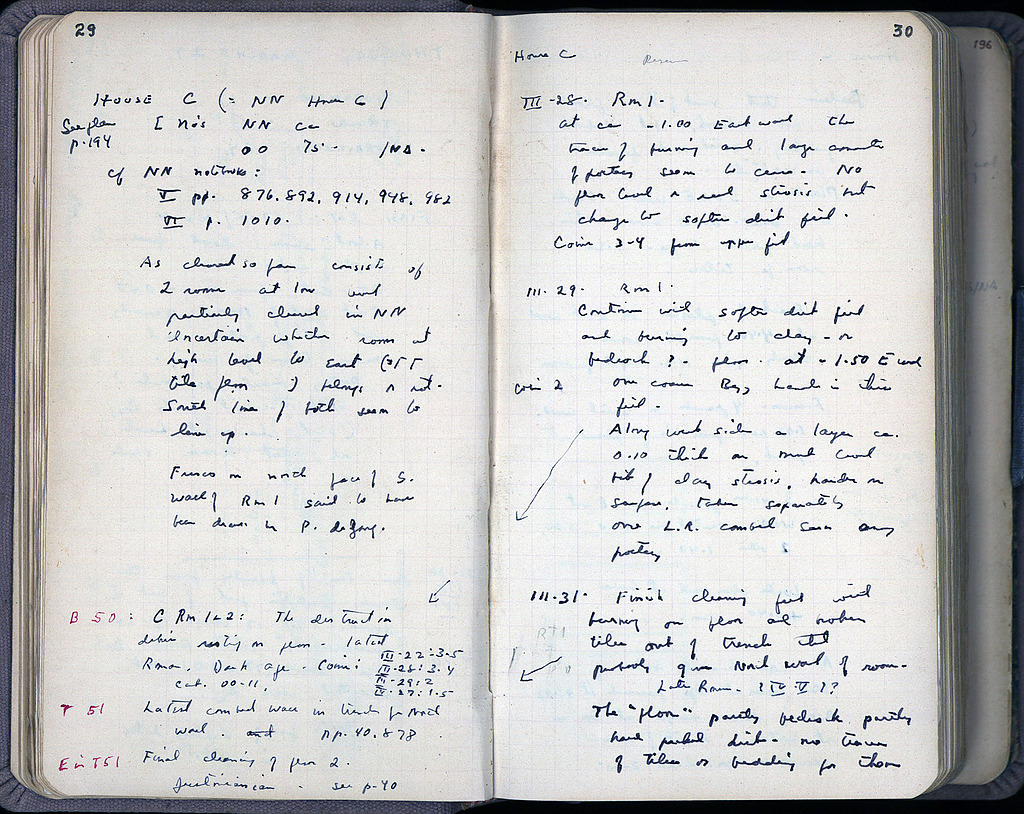 29
HOUSE C (= NN House C)
See plan [ No's NN ca
p. 194 00 75 - /NA.
cf NN notebooks:
V pp. 876, 892, 914, 948, 982
VI p. 1010.
As cleared so far consists of
2 rooms at low level
partially cleared in NN
Uncertain whether room at
high level to East
tile floor ) belongs or not.
South line of both seem to
line up.
Fresco on north face of S.
wall of Rm 1 said to have
been drawn by P. de Jong.
B 50: C Rm 1 & 2: The destruction
debris resting on floor. latest
Roman. Dark age. Coins: III-22:3-5
III-28:3.4
cat. 00-11, III-29:2
IV-27:1.5
T 51 Latest combed ware in trench for North
wall. and pp. 40, 878
E in T51 Final cleaning of floor 2.
Justinianian - see p-40
30
House C
III-28. Rm 1.
At ca -1.00 East wall the
traces of burning and large amounts
of pottery seem to cease. No
floor level or real strosis but
change to softer dirt fill.
Coins 3-4 from upper fill
III-29. Rm 1.
Continue with softer dirt fill
and burning to clay - or
bedrock? - floor at -1.50 E end
coin 2 one coarse Byz handle in this
fill.
Along west side a layer ca.
0.10 thick
bit of clay strosis, harder on
surface, taken separately
one L.R. combed
pottery
III-31. Finish cleaning fill with
burning on floor and
tiles out of trench
probably from North wall of room.
Late Roman. ? IV-V ??
The "floor" partly bedrock partly
hard packed dirt - no traces
of tiles or bedding for them
196